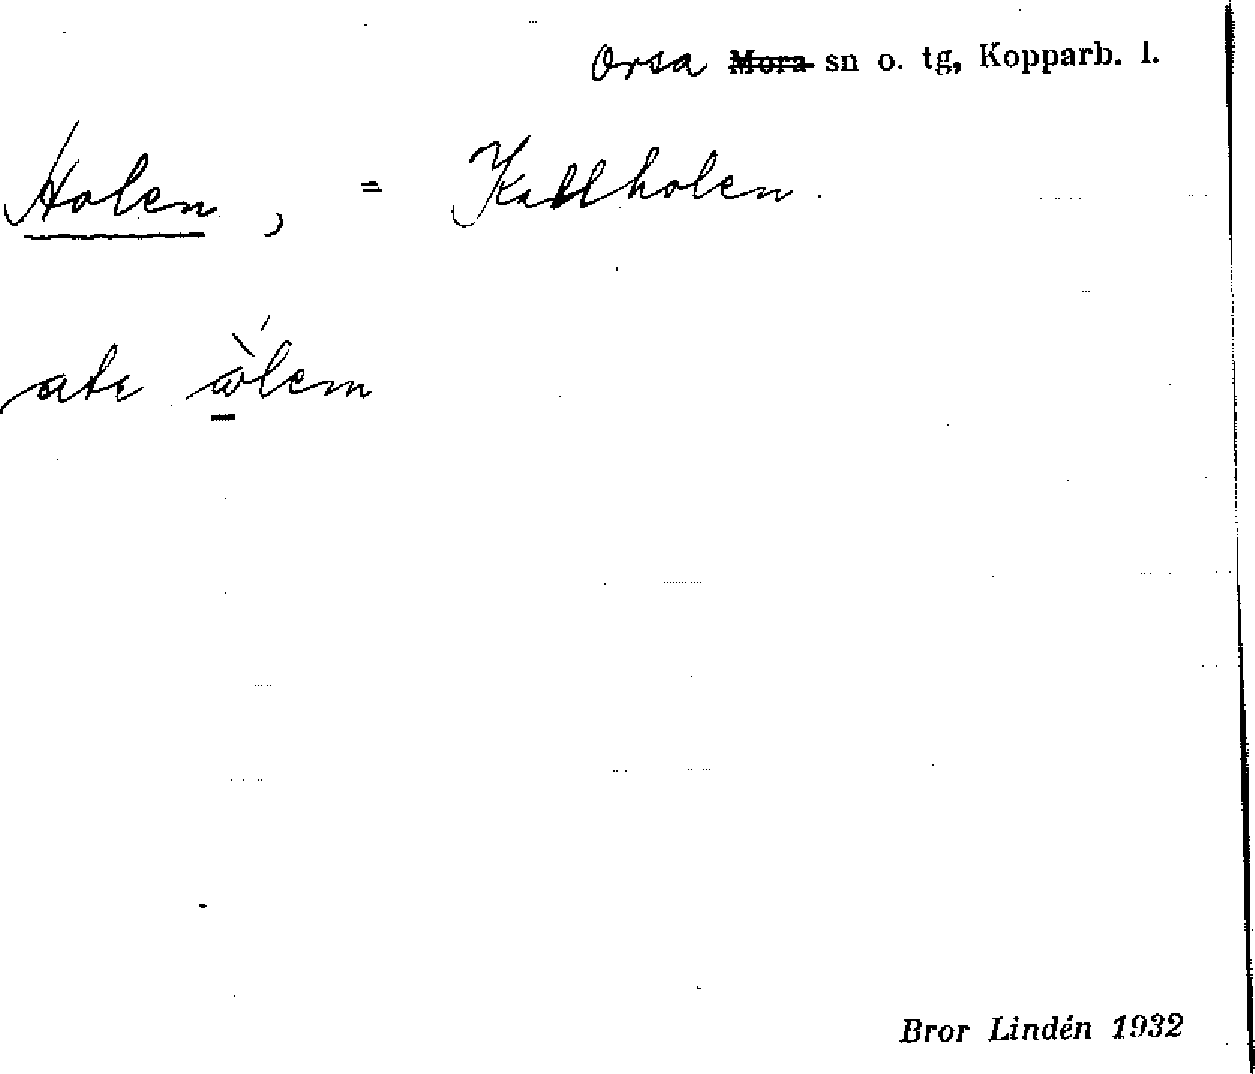 Orsa Mora sn o. tg, Kopparb. l.
Holen, = Kallholen.
ate
Bror Lindén 1932